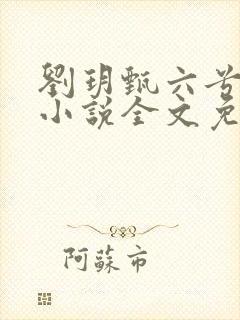 劉玥甄六兮
小說全文免
阿蘇市